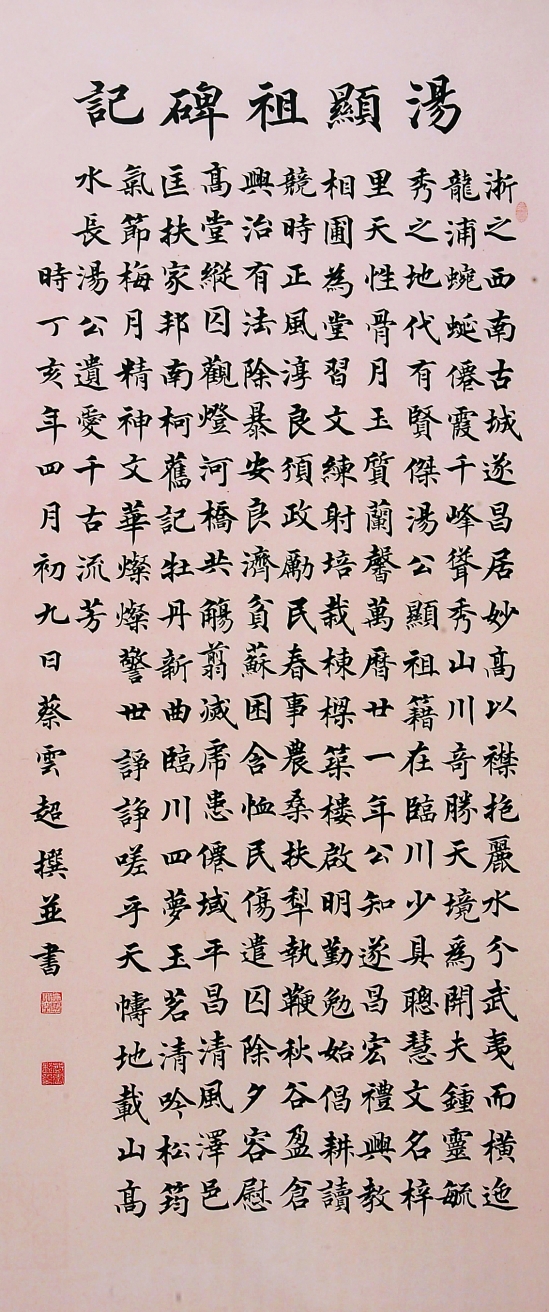 湯顯祖碑記
浙之西南古城遂昌居妙高以襟抱麗水兮武夷而橫迤
龍浦蜿蜒僊霞千峰聳秀山川奇勝天境爲開夫鍾靈毓
秀之地代有賢傑湯公顯祖籍在臨川少具聰慧文名梓
里天性骨月玉質蘭馨萬曆廿一年公知遂昌宏禮興教
相圃為堂習文練射培栽棟樑築楼啟明勤勉始倡耕讀
競時正風淳良須政勵民春事農桑扶犁執鞭秋谷盈倉
興治有法除暴安良濟貧蘇困含恤民傷遣囚除夕容慰
高堂縱囚觀燈河橋共觴翦滅虎患僊域平昌清風澤邑
匡扶家邦南柯舊記牡丹新曲臨川四夢玉茗清吟松筠
氣節梅月精神文華燦燦警世諍諍嗟乎天幬地載山高
水長湯公遺愛千古流芳
時丁亥年四月初九日蔡雲超撰並書